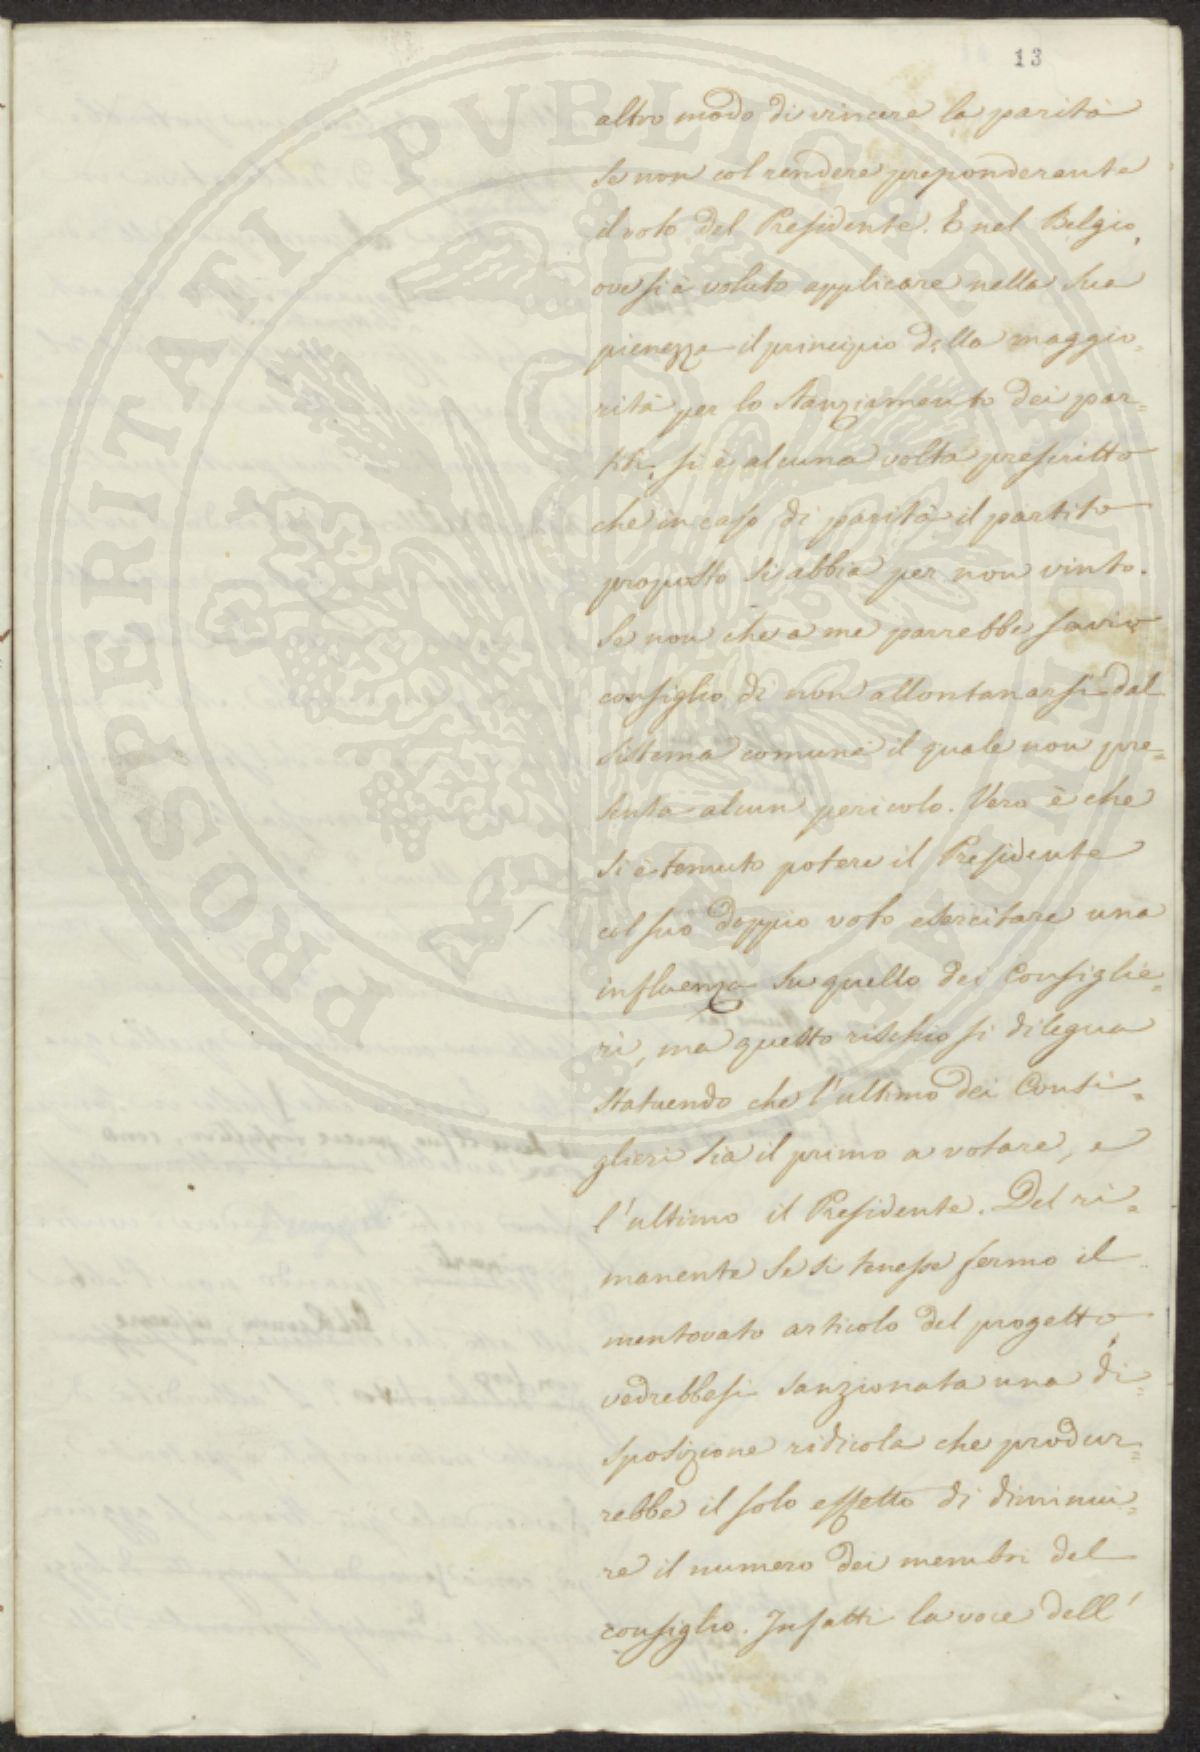 13
altro modo di vincere la parità
se non col rendere preponderante
il voto del Presidente. E nel Belgio,
ove si è voluto applicare nella sua
pienezza il principio della maggio=
rità per lo stanziamento dei par=
titi, si è alcuna volta prescritto
che in caso di parità il partito
proposto si abbia per non vinto.
Se non che a me parrebbe savio
consiglio di non allontanarsi dal
sistema comune il quale non pre=
senta alcun pericolo. Vero è che
si è temuto potere il Presidente
col suo doppio voto esercitare una
influenza su quello dei Consiglie=
ri, ma questo rischio si dilegua
statuendo che l'ultimo dei Consi=
glieri sia il primo a votare, e
l'ultimo il Presidente. Del ri=
manente se si tenesse fermo il
mentovato articolo del progetto
vedrebbesi sanzionata una di=
sposizione ridicola che produr=
rebbe il solo effetto di diminui=
re il numero dei membri del
consiglio. Infatti la voce dell'
PROSPERITATI PVBLICAE